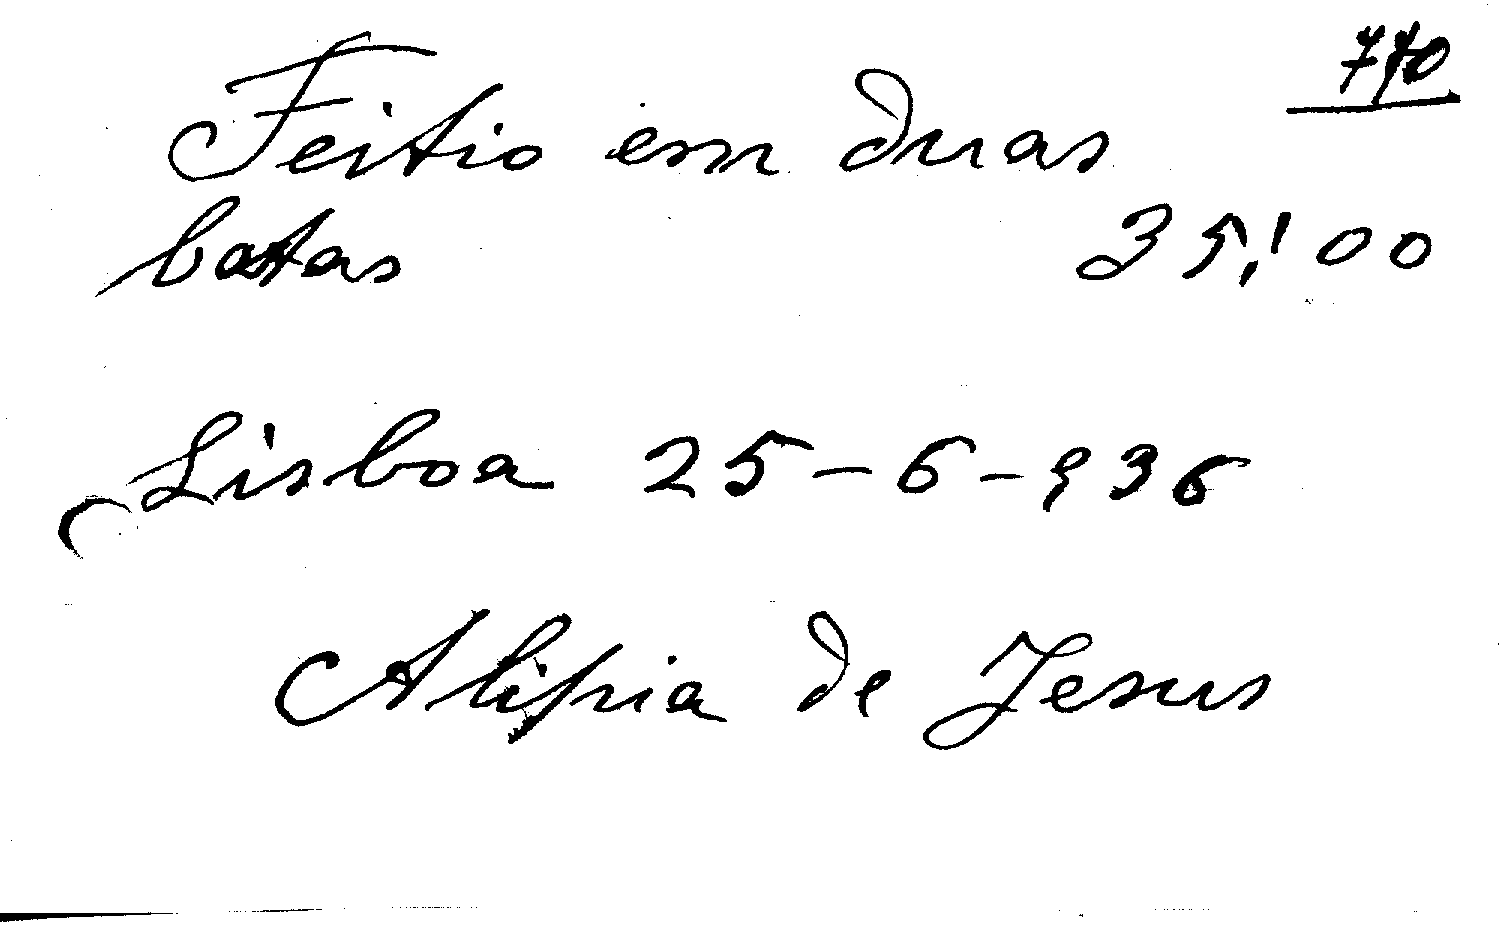 770
Feitio em duas
batas 35,!00
Lisboa 25-6-936
Alipia de Jesus